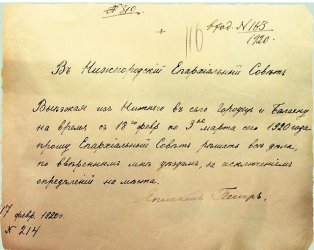 № 310.
вход № 163
1920.
116
Въ Нижегородскiй Епархiальный Совѣтъ
Выѣзжая изъ Нижняго въ села Городецъ и Балахну
на время съ 18го февр по 3ье марта сего 1920 года
прошу Епархiальный Совѣтъ рѣшать всѣ дѣла,
по ввѣреннымъ мнѣ уѣздамъ, за исключенiемъ
опредѣленiй на мѣста.
Епископъ Петръ.
17 февр. 1920 г.
№ 214